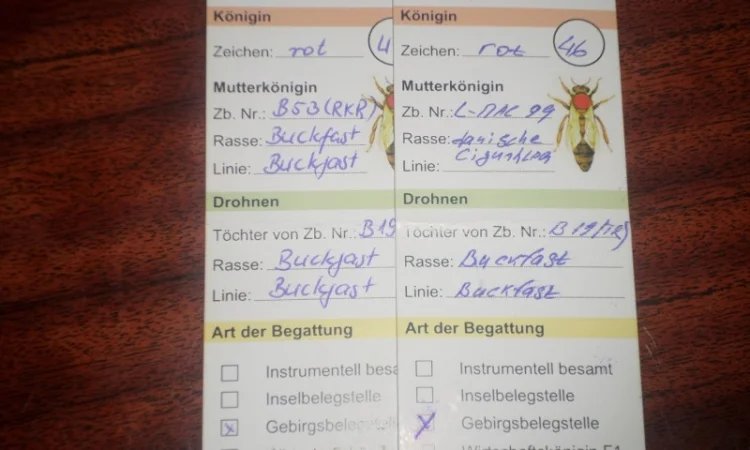 Königin
Zeichen: rot 4
Mutterkönigin
Zb. Nr.: B53(RKR)
Rasse: Buckfast
Linie: Buckfast
Drohnen
Töchter von Zb. Nr.: B19
Rasse: Buckfast
Linie: Buckfast
Art der Begattung
Instrumentell besa
Inselbelegstelle
Gebirgsbelegstelle
Königin
Zeichen: rot 46
Mutterkönigin
Zb. Nr.:
Rasse: dänische
Linie:
Drohnen
Töchter von Zb. Nr.: B19(TR)
Rasse: Buckfast
Linie: Buckfast
Art der Begattung
Instrumentell besamt
Inselbelegstelle
Gebirgsbelegstelle